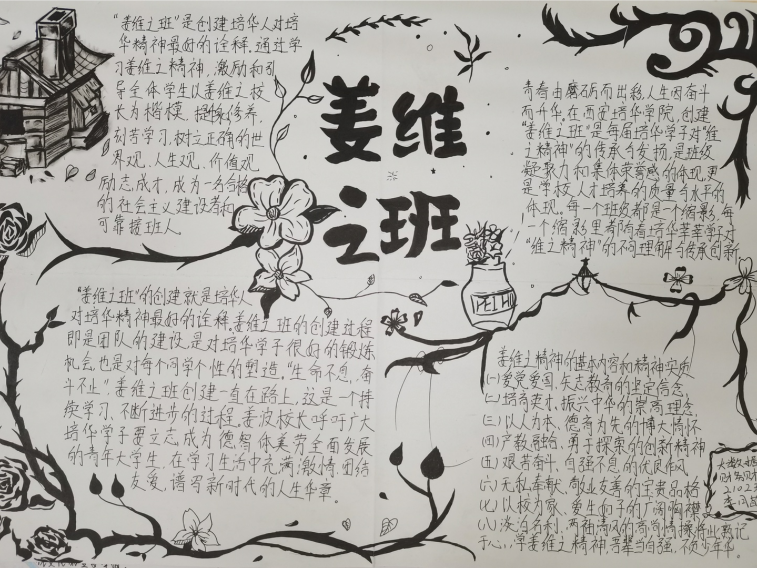 姜维
之班
"姜维之班"是创建培华人对培
华精神最好的诠释,通过学
习姜维之精神,激励和引
导全体学生以姜维之校
长为楷模,提振修养,
刻苦学习,树立正确的世
界观、人生观、价值观
励志成才,成为一名合格
的社会主义建设者和
可靠接班人。
青春由磨砺而出彩,人生因奋斗
而升华。在西安培华学院,创建
"姜维之班"是每届培华学子对"维
之精神"的传承与发扬,是班级
凝聚力和集体荣誉感的体现,更
是学校人才培养的质量与水平的
体现。每一个班级都是一个缩影,每
一个缩影里都有着培华莘莘学子对
"维之精神"的不同理解与传承创新
"姜维之班"的创建就是培华人
对培华精神最好的诠释,姜维之班的创建过程
即是团队的建设,是对培华学子很好的锻炼
机会,也是对每个同学个性的塑造。"生命不息,奋
斗不止",姜维之班创建一直在路上,这是一个持
续学习、不断进步的过程,姜波校长呼吁广大
培华学子要立志成为德智体美劳全面发展
的青年大学生,在学习生活中充满激情,团结
友爱,谱写新时代的人生华章。
姜维之精神的基本内容和精神实质
(一)爱党爱国,矢志教育的坚定信念
(二)培育英才,振兴中华的崇高理念
(三)以人为本,德育为先的博大情怀
(四)产教融合,勇于探索的创新精神
(五)艰苦奋斗,自强不息的优良作风
(六)无私奉献,敬业友善的宝贵品格
(七)以校为家,爱生如子的广阔胸襟
(八)淡泊名利,两袖清风的高尚情操将此熟记
于心,学姜维之精神,吾辈当自强,不负少年华。
PEIH
大数据